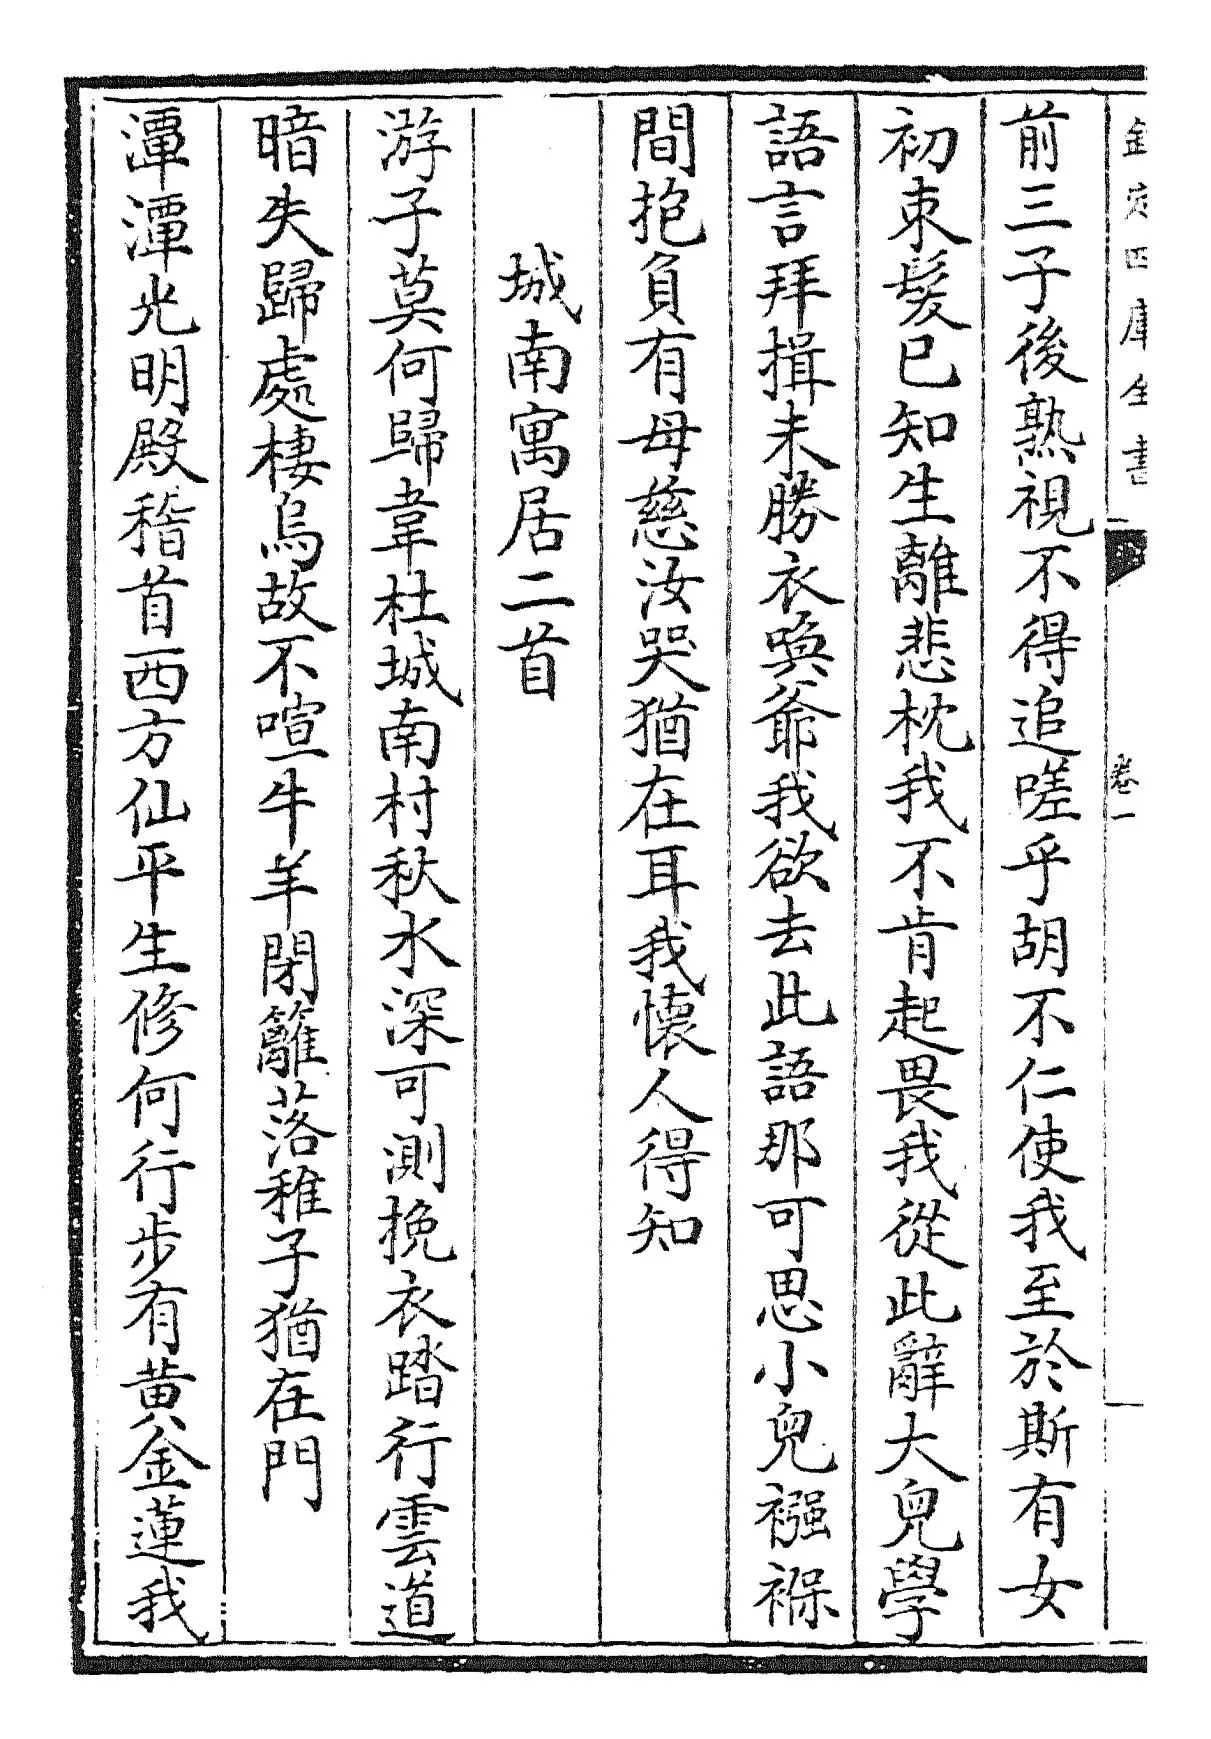 欽定四庫全書
卷一
前三子後熟視不得追嗟乎胡不仁使我至於斯有女
初束髮已知生離悲枕我不肯起畏我從此辭大兒學
語言拜揖未勝衣喚爺我欲去此語那可思小兒襁褓
間抱負有母慈汝哭猶在耳我懷人得知
城南寓居二首
游子莫何歸韋杜城南村秋水深可測挽衣踏行雲道
暗失歸處棲烏故不喧牛羊閉籬落稚子猶在門
潭潭光明殿稽首西方仙平生修何行步有黄金蓮我